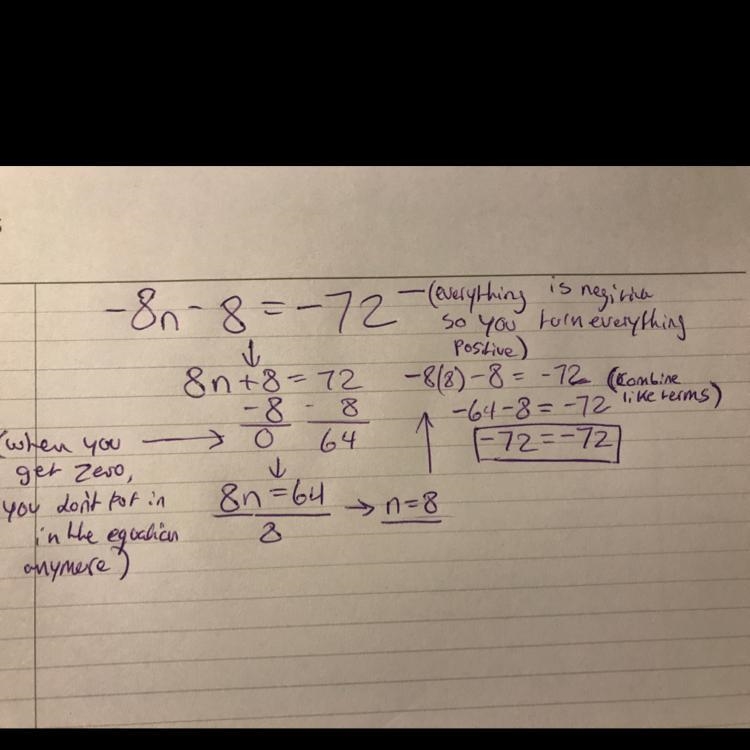 -8n - 8 = -72 — (everything is negitive
so you turn everything
positive)
↓
8n + 8 = 72
-8 - 8
0 64
(when you →
get zero,
you don't put in
in the equation
anymore)
↓
8n = 64 → n = 8
8
↑
-8(8) - 8 = -72 (combine
like terms)
-64 - 8 = -72
-72 = -72